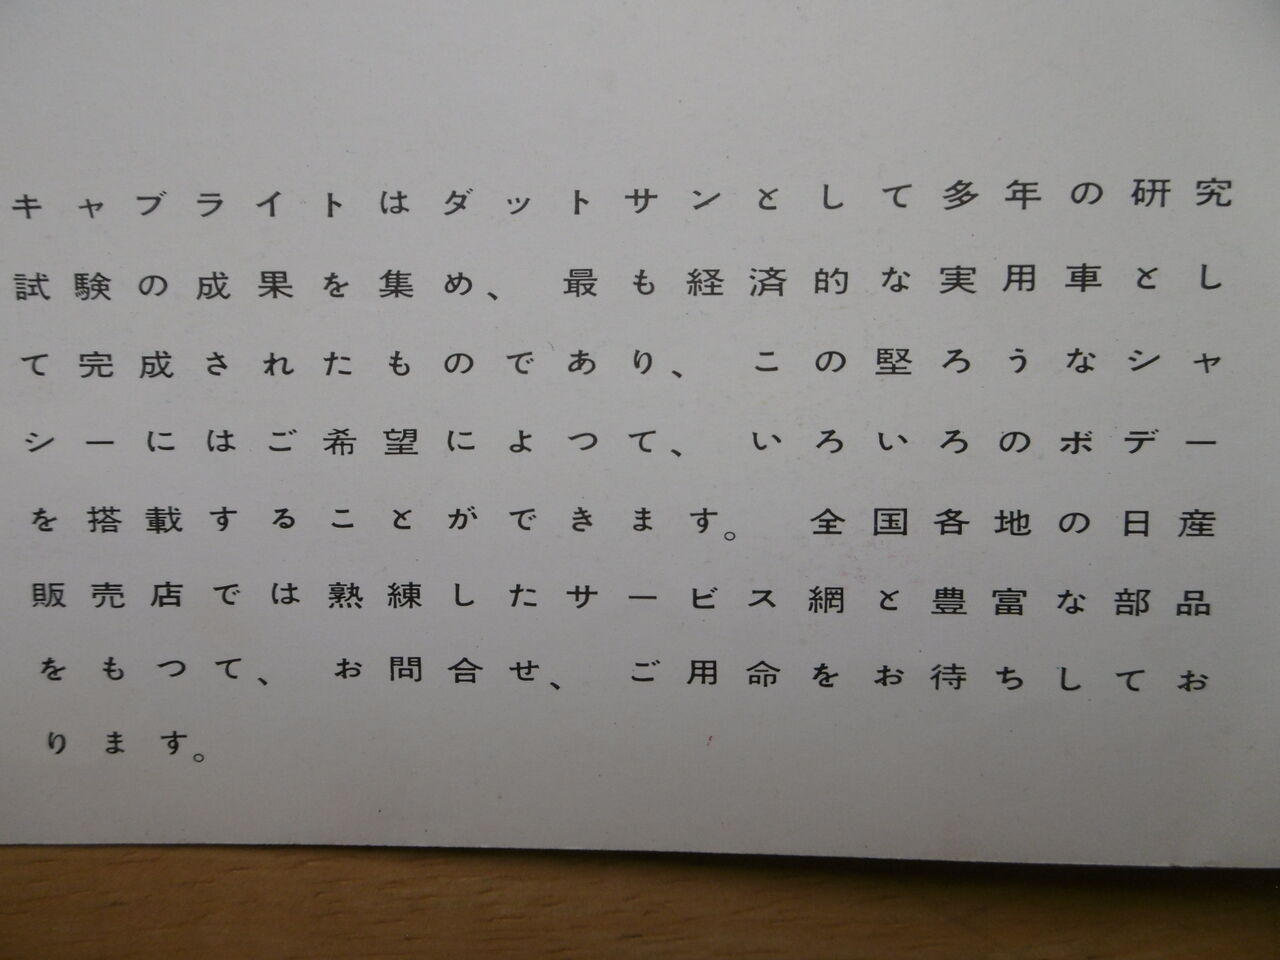 キャブライトはダットサンとして多年の研究
試験の成果を集め、最も経済的な実用車とし
て完成されたものであり、この堅ろうなシャ
シーにはご希望によつて、いろいろのボデー
を搭載することができます。全国各地の日産
販売店では熟練したサービス網と豊富な部品
をもつて、お問合せ、ご用命をお待ちしてお
ります。